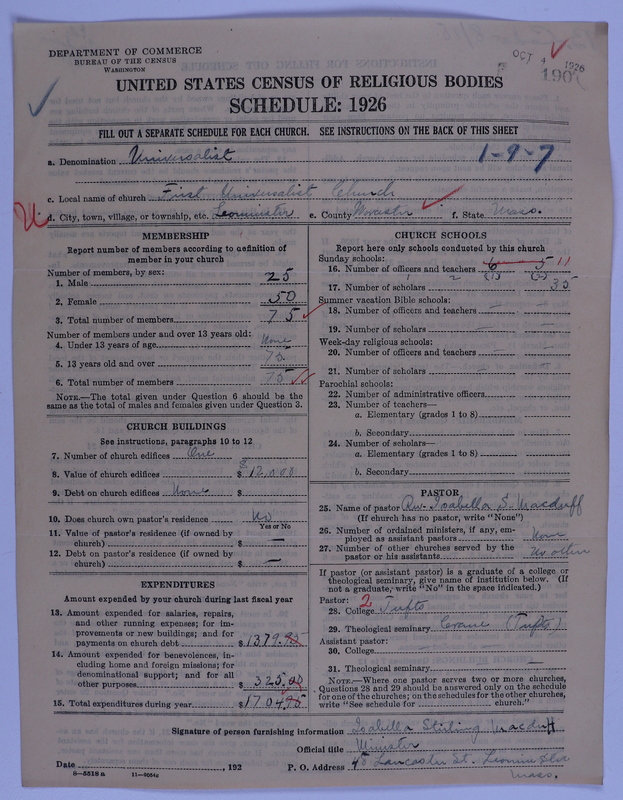 DEPARTMENT OF COMMERCE
BUREAU OF THE CENSUS
WASHINGTON
OCT 4 1926
190
UNITED STATES CENSUS OF RELIGIOUS BODIES
SCHEDULE: 1926
FILL OUT A SEPARATE SCHEDULE FOR EACH CHURCH. SEE INSTRUCTIONS ON THE BACK OF THIS SHEET
a. Denomination Universalist
1-9-7
c. Local name of church First Universalist Church
d. City, town, village, or township, etc. Leominster e. County Worcester f. State Mass.
MEMBERSHIP
Report number of members according to definition of
member in your church
Number of members, by sex:
1. Male 25
2. Female 50
3. Total number of members 75
Number of members under and over 13 years old:
4. Under 13 years of age None
5. 13 years old and over 75
6. Total number of members 75
NOTE.—The total given under Question 6 should be
same as the total of males and females given under Question 3.
CHURCH BUILDINGS
See instructions, paragraphs 10 to 12
7. Number of church edifices One
8. Value of church edifices $ 12,000
9. Debt on church edifices None $
10. Does church own pastor's residence No
Yes or No
11. Value of pastor's residence (if owned by
church) $ —
12. Debt on pastor's residence (if owned by
church) $ —
EXPENDITURES
Amount expended by your church during last fiscal year
13. Amount expended for salaries, repairs,
and other running expenses; for im-
provements or new buildings; and for
payments on church debt $ 1379.95
14. Amount expended for benevolences, in-
cluding home and foreign missions; for
denominational support; and for all
other purposes $ 325.00
15. Total expenditures during year $ 1704.95
CHURCH SCHOOLS
Report here only schools conducted by this church
Sunday schools:
16. Number of officers and teachers 6 5 11
17. Number of scholars 35
Summer vacation Bible schools:
18. Number of officers and teachers — —
19. Number of scholars — —
Week-day religious schools:
20. Number of officers and teachers — —
21. Number of scholars — —
Parochial schools:
22. Number of administrative officers
23. Number of teachers—
a. Elementary (grades 1 to 8)
b. Secondary
24. Number of scholars—
a. Elementary (grades 1 to 8)
b. Secondary
PASTOR
25. Name of pastor Rev. Isabella S. Macduff
(If church has no pastor, write "None")
26. Number of ordained ministers, if any, em-
ployed as assistant pastors None
27. Number of other churches served by the
pastor or his assistants No other
If pastor (or assistant pastor) is a graduate of a college or
theological seminary, give name of institution below. (If
not a graduate, write "No" in the space indicated.)
Pastor: 2
28. College Tufts
29. Theological seminary Crane (Tufts)
Assistant pastor:
30. College
31. Theological seminary —
NOTE.—Where one pastor serves two or more churches,
Questions 28 and 29 should be answered only on the schedule
for one of the churches; on the schedules for the other churches,
write "See schedule for church."
Signature of person furnishing information Isabella Stirling Macduff
Official title Minister
Date , 192 P. O. Address 45 Lancaster St. Leominster
Mass.
8—5518 a 11—9054c